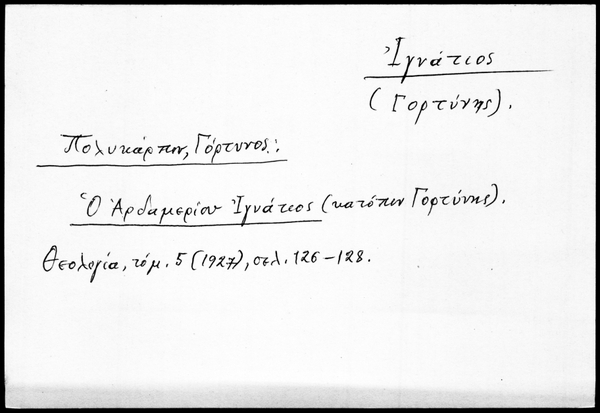 Ἰγνάτιος
(Γορτύνης).
Πολυκάρπου, Γόρτυνος:
Ὁ Ἀρδαμερίου Ἰγνάτιος (κατόπιν Γορτύνης).
Θεολογία, τόμ. 5 (1927), σελ. 126-128.